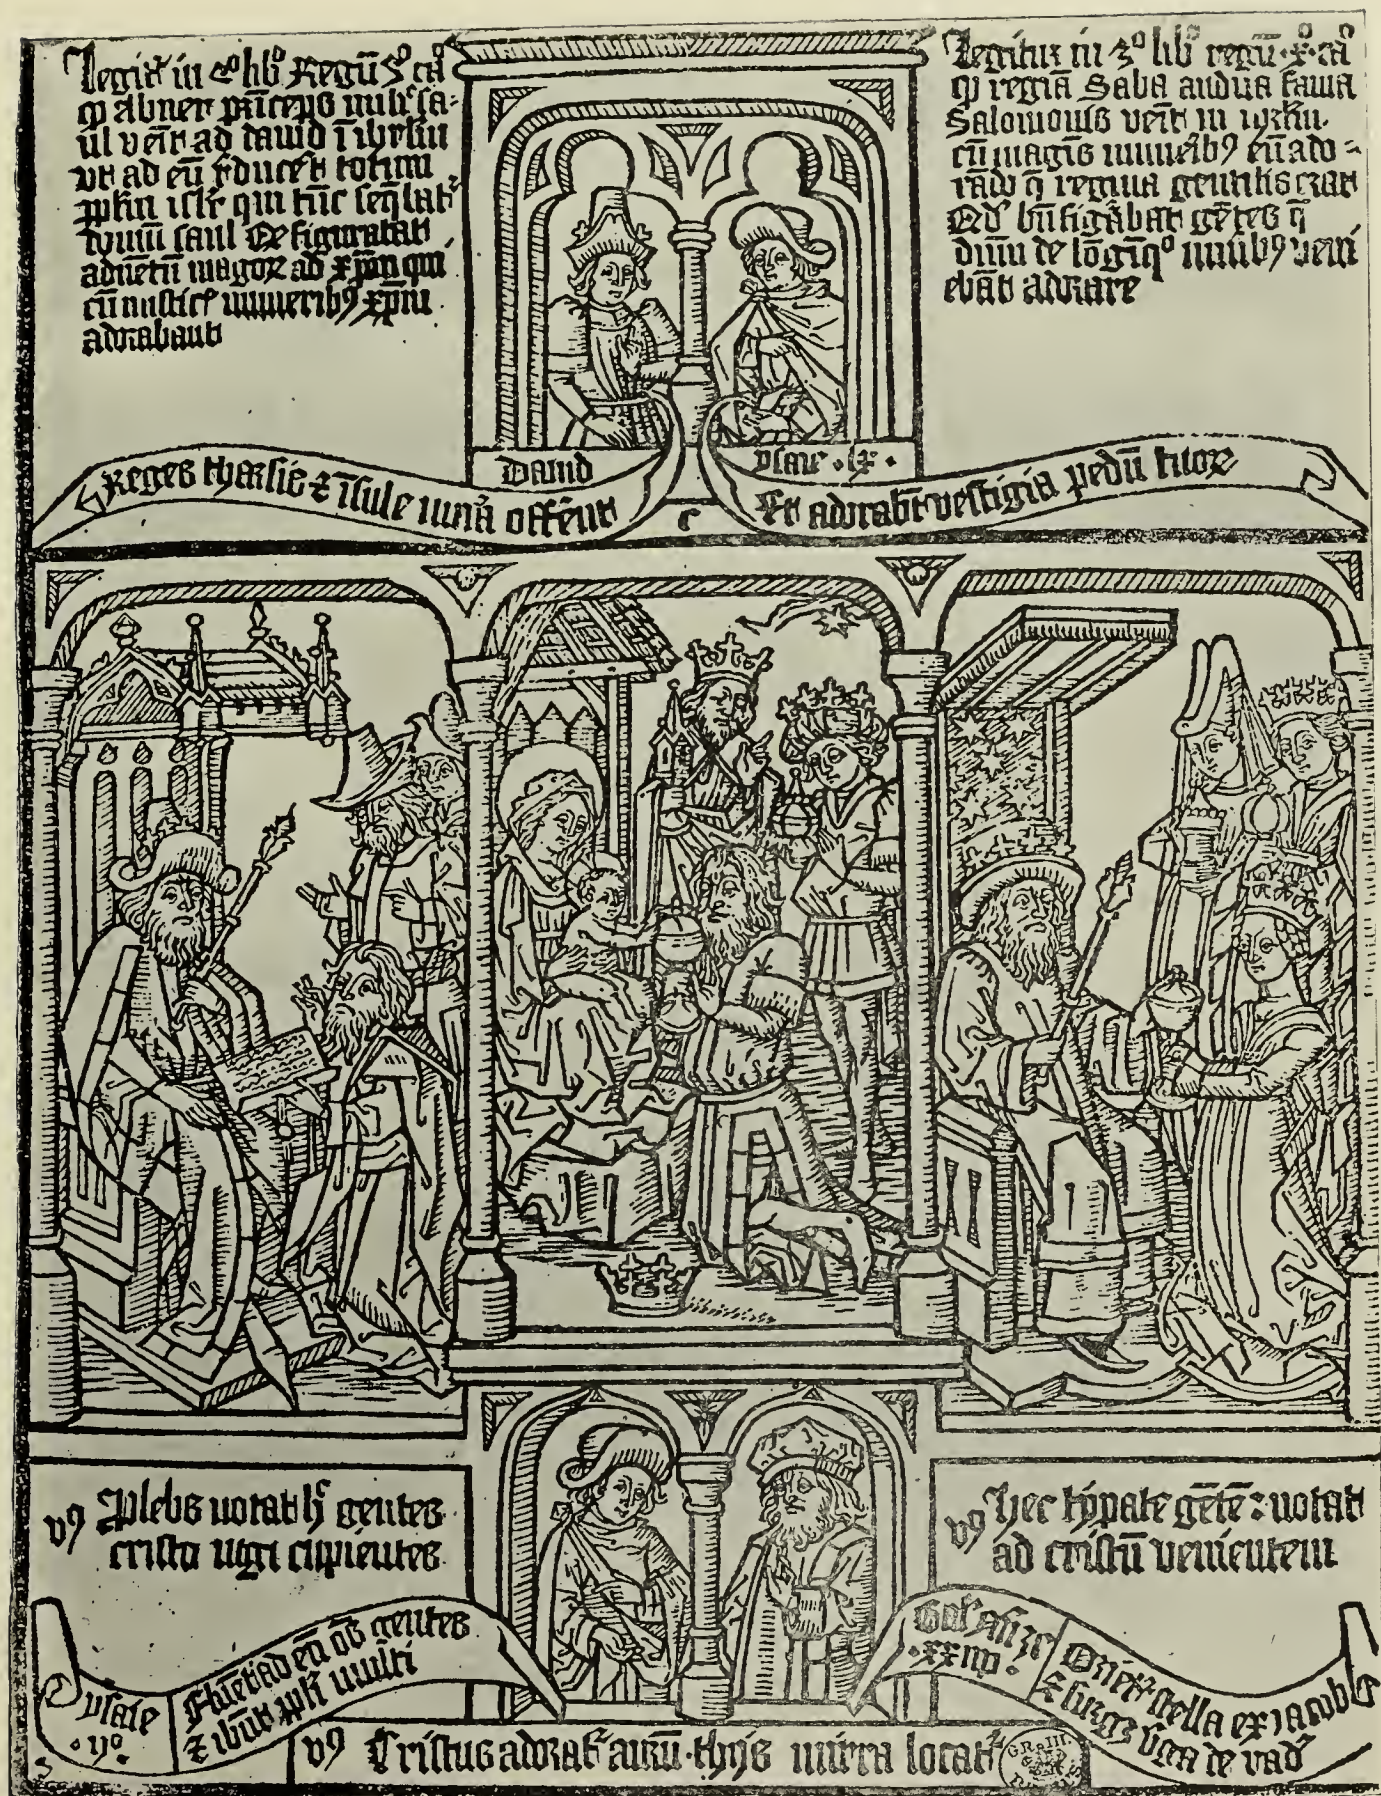 Legit᷑ in 2º libº Regū 3º ca̅
ꝙ abner princeps milit᷑ sa-
ul venit ad dauid i̅ ihrlm
vt ad eū reduceret totum
pplm isrl qui tūc seq̄bat᷑
domū saul Qd̅ figurabat
aduētū magoꝝ ad xp̅m qui
cū misticꝭ muneribꝰ xp̅m
adorabant
Legitur in 3º libº regū .x. ca̅
ꝙ regīa Saba audita fama
Salomonis venit in ihrlm
cū magnis muneribꝰ eū ado-
rādo q̅ regina gentilis erat
Qd̅ bn̅ figᷓbat gētes q̅
dn̅m de lōginqº munibꝰ veni
ebāt adorare
Dauid
ysaie .lx.
Reges tharsis ⁊ īsule mun̅a offerent
Et adorabūt vestigia pedū tuoꝝ
c
vꝰ Plebs notat hꝭ gentes
cristo iūgi cupientes
vꝰ Hec typate gētē notat
ad cristū venientem
ysaie
.ijº.
Fluēt ad eū oēs gentes
⁊ ibūt ppli multi
Balaā
.xxiiij.
Oriet᷑ stella ex iacob
⁊ surget v̅ga de
vꝰ Cristus adorat᷑ aurū thus mirra locat᷑